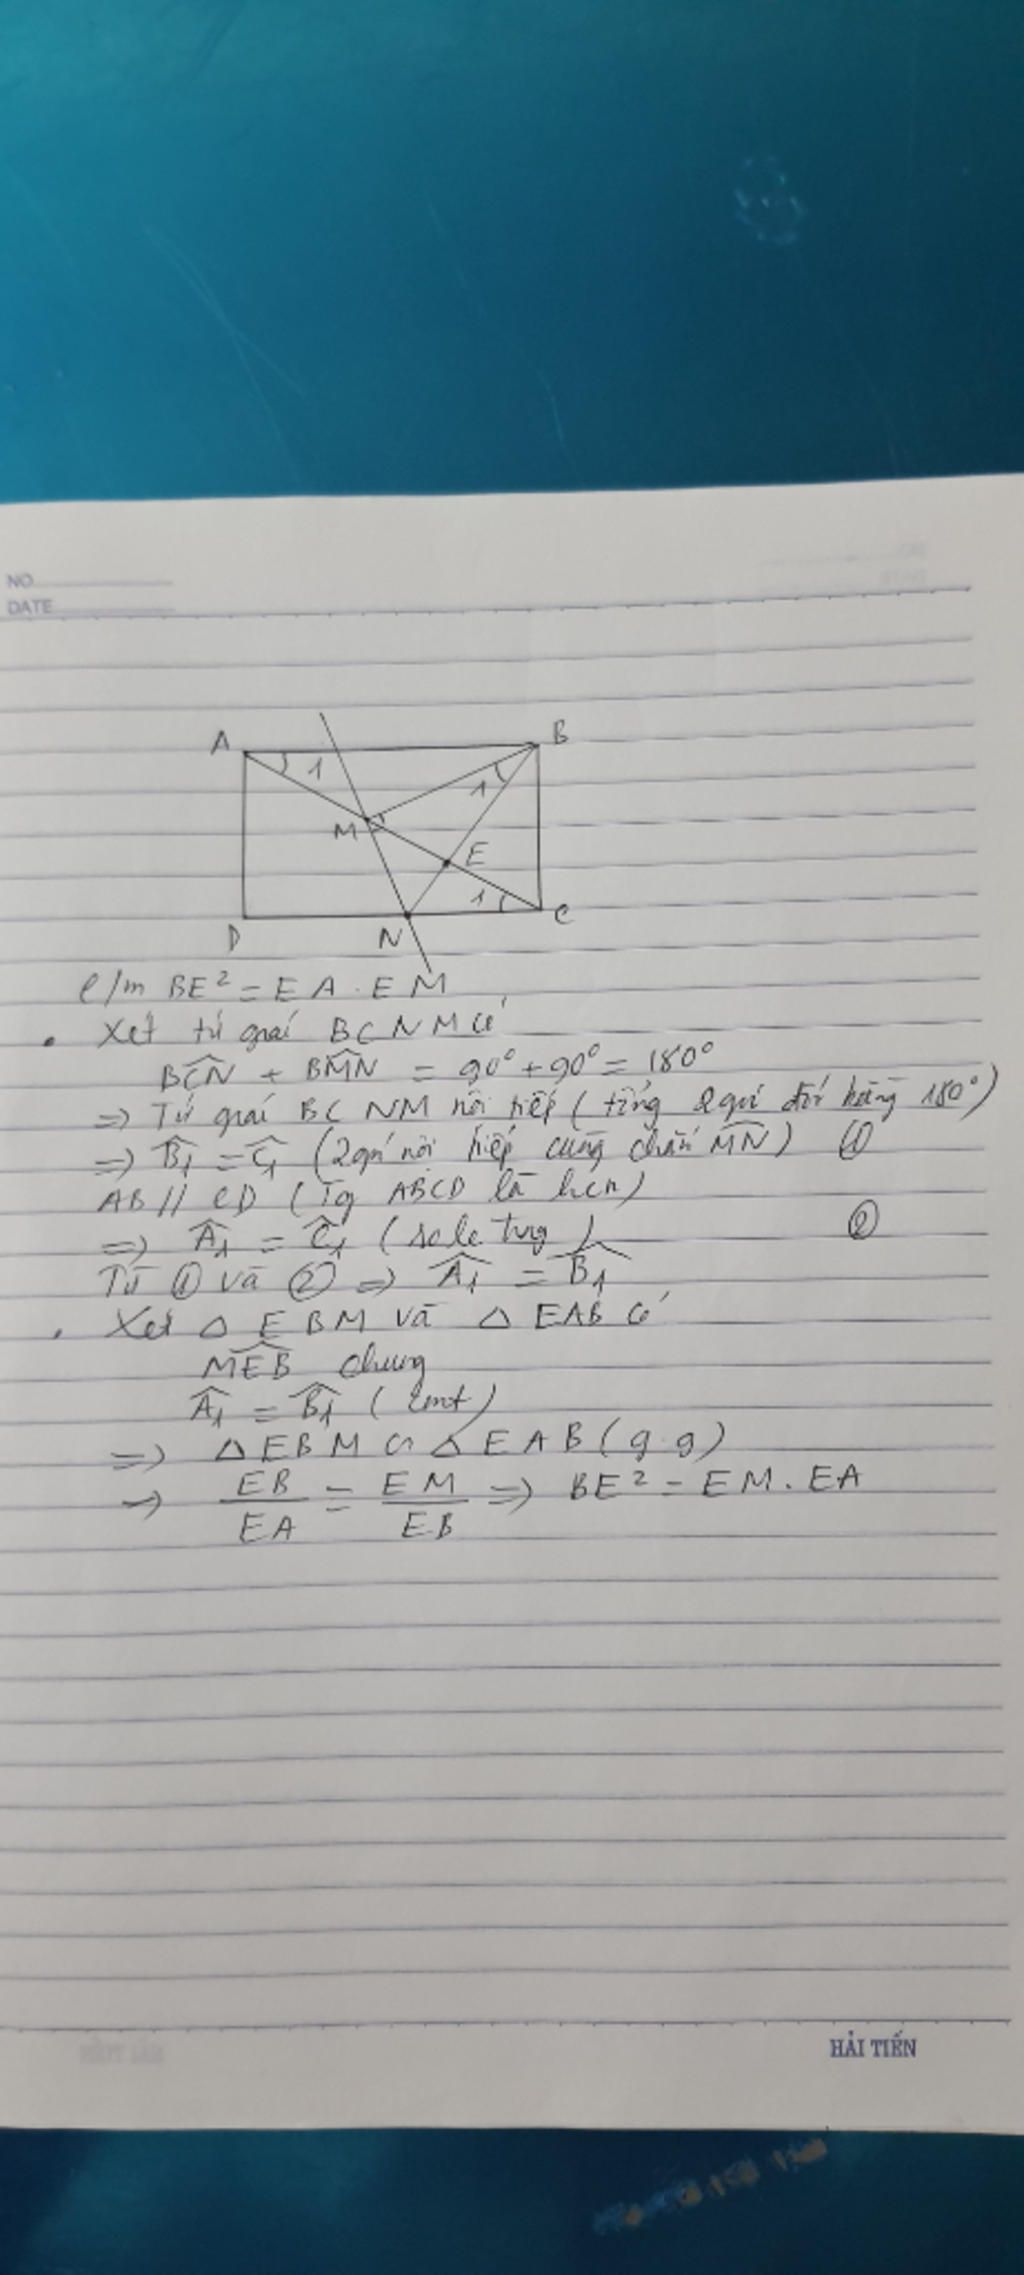 NO
DATE
A
B
1
1
M
E
1
C
D
N
c/m BE² = EA . EM
• Xét tứ giác BCNM có
BĈN + BM̂N = 90° + 90° = 180°
=> Tứ giác BCNM nội tiếp (tổng 2 góc đối bằng 180°)
=> B̂₁ = Ĉ₁ (2 góc nội tiếp cùng chắn MN) ①
AB // CD (Tg ABCD là hcn)
=> Â₁ = Ĉ₁ (sole trong) ②
Từ ① và ② => Â₁ = B̂₁
• Xét △ EBM và △ EAB có
MÊB chung
Â₁ = B̂₁ (cmt)
=> △ EBM ∽ △ EAB (g.g)
=> EB/EA = EM/EB => BE² = EM . EA
HẢI TIẾN